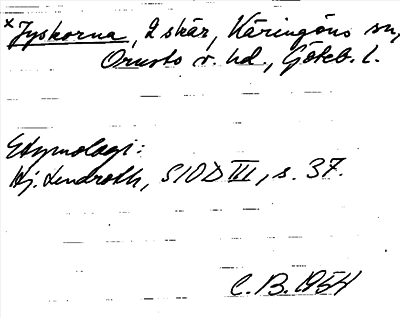 × Jyskorna, 2 skär, Käringöns sn,
Orusts v. hd., Göteb. l.
Etymologi:
Hj. Lindroth, SIOD III, s. 37.
C. B. 1954